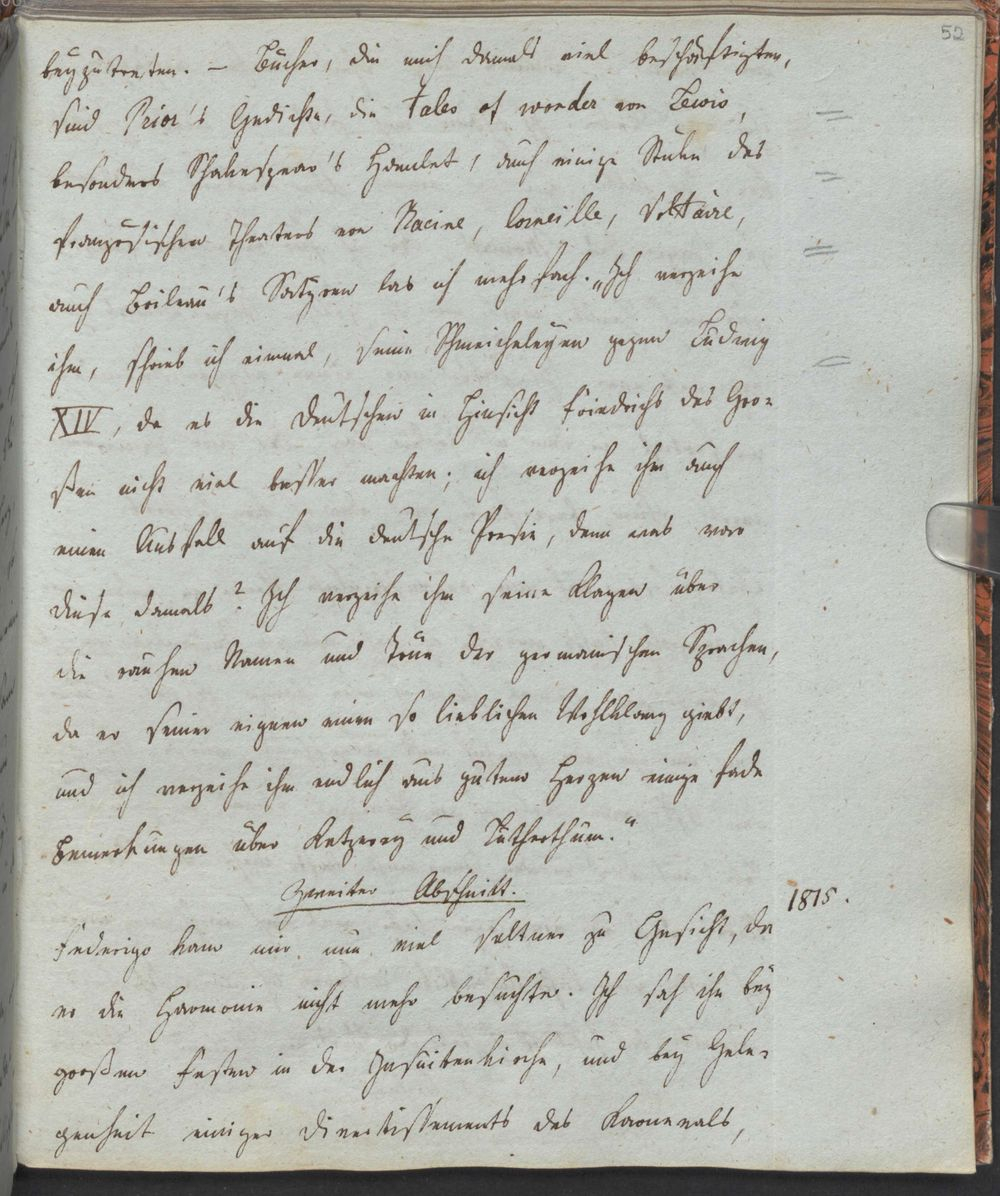 52
beyzutreten. – Bücher, die mich damals viel beschäftigten,
sind Prior's Gedichte, die Tales of wonder von Lewis,
besonders Shakespear's Hamlet, auch einige Stücke des
französischen Theaters von Racine, Corneille, Voltaire,
auch Boileau's Satyren las ich mehrfach. „Ich verzeihe
ihm, schrieb ich einmal, seine Schmeicheleyen gegen Ludwig
XIV, da es die Deutschen in Hinsicht Friedrichs des Gro-
ßen nicht viel besser machten; ich verzeihe ihm auch
einen Ausfall auf die deutsche Poesie, denn was war
diese damals? Ich verzeihe ihm seine Klagen über
die rauhen Namen und Töne der germanischen Sprachen,
da er seiner eignen einen so lieblichen Wohlklang giebt,
und ich verzeihe ihm endlich aus gutem Herzen einige fade
Bemerkungen über Ketzerey und Lutherthum.“
Zweiter Abschnitt.
1815.
Federigo kam mir nun viel seltner zu Gesicht, da
er die Harmonie nicht mehr besuchte. Ich sah ihn bey
großen Festen in der Jesuitenkirche, und bey Gele-
genheit einiger Divertissements des Karnevals,